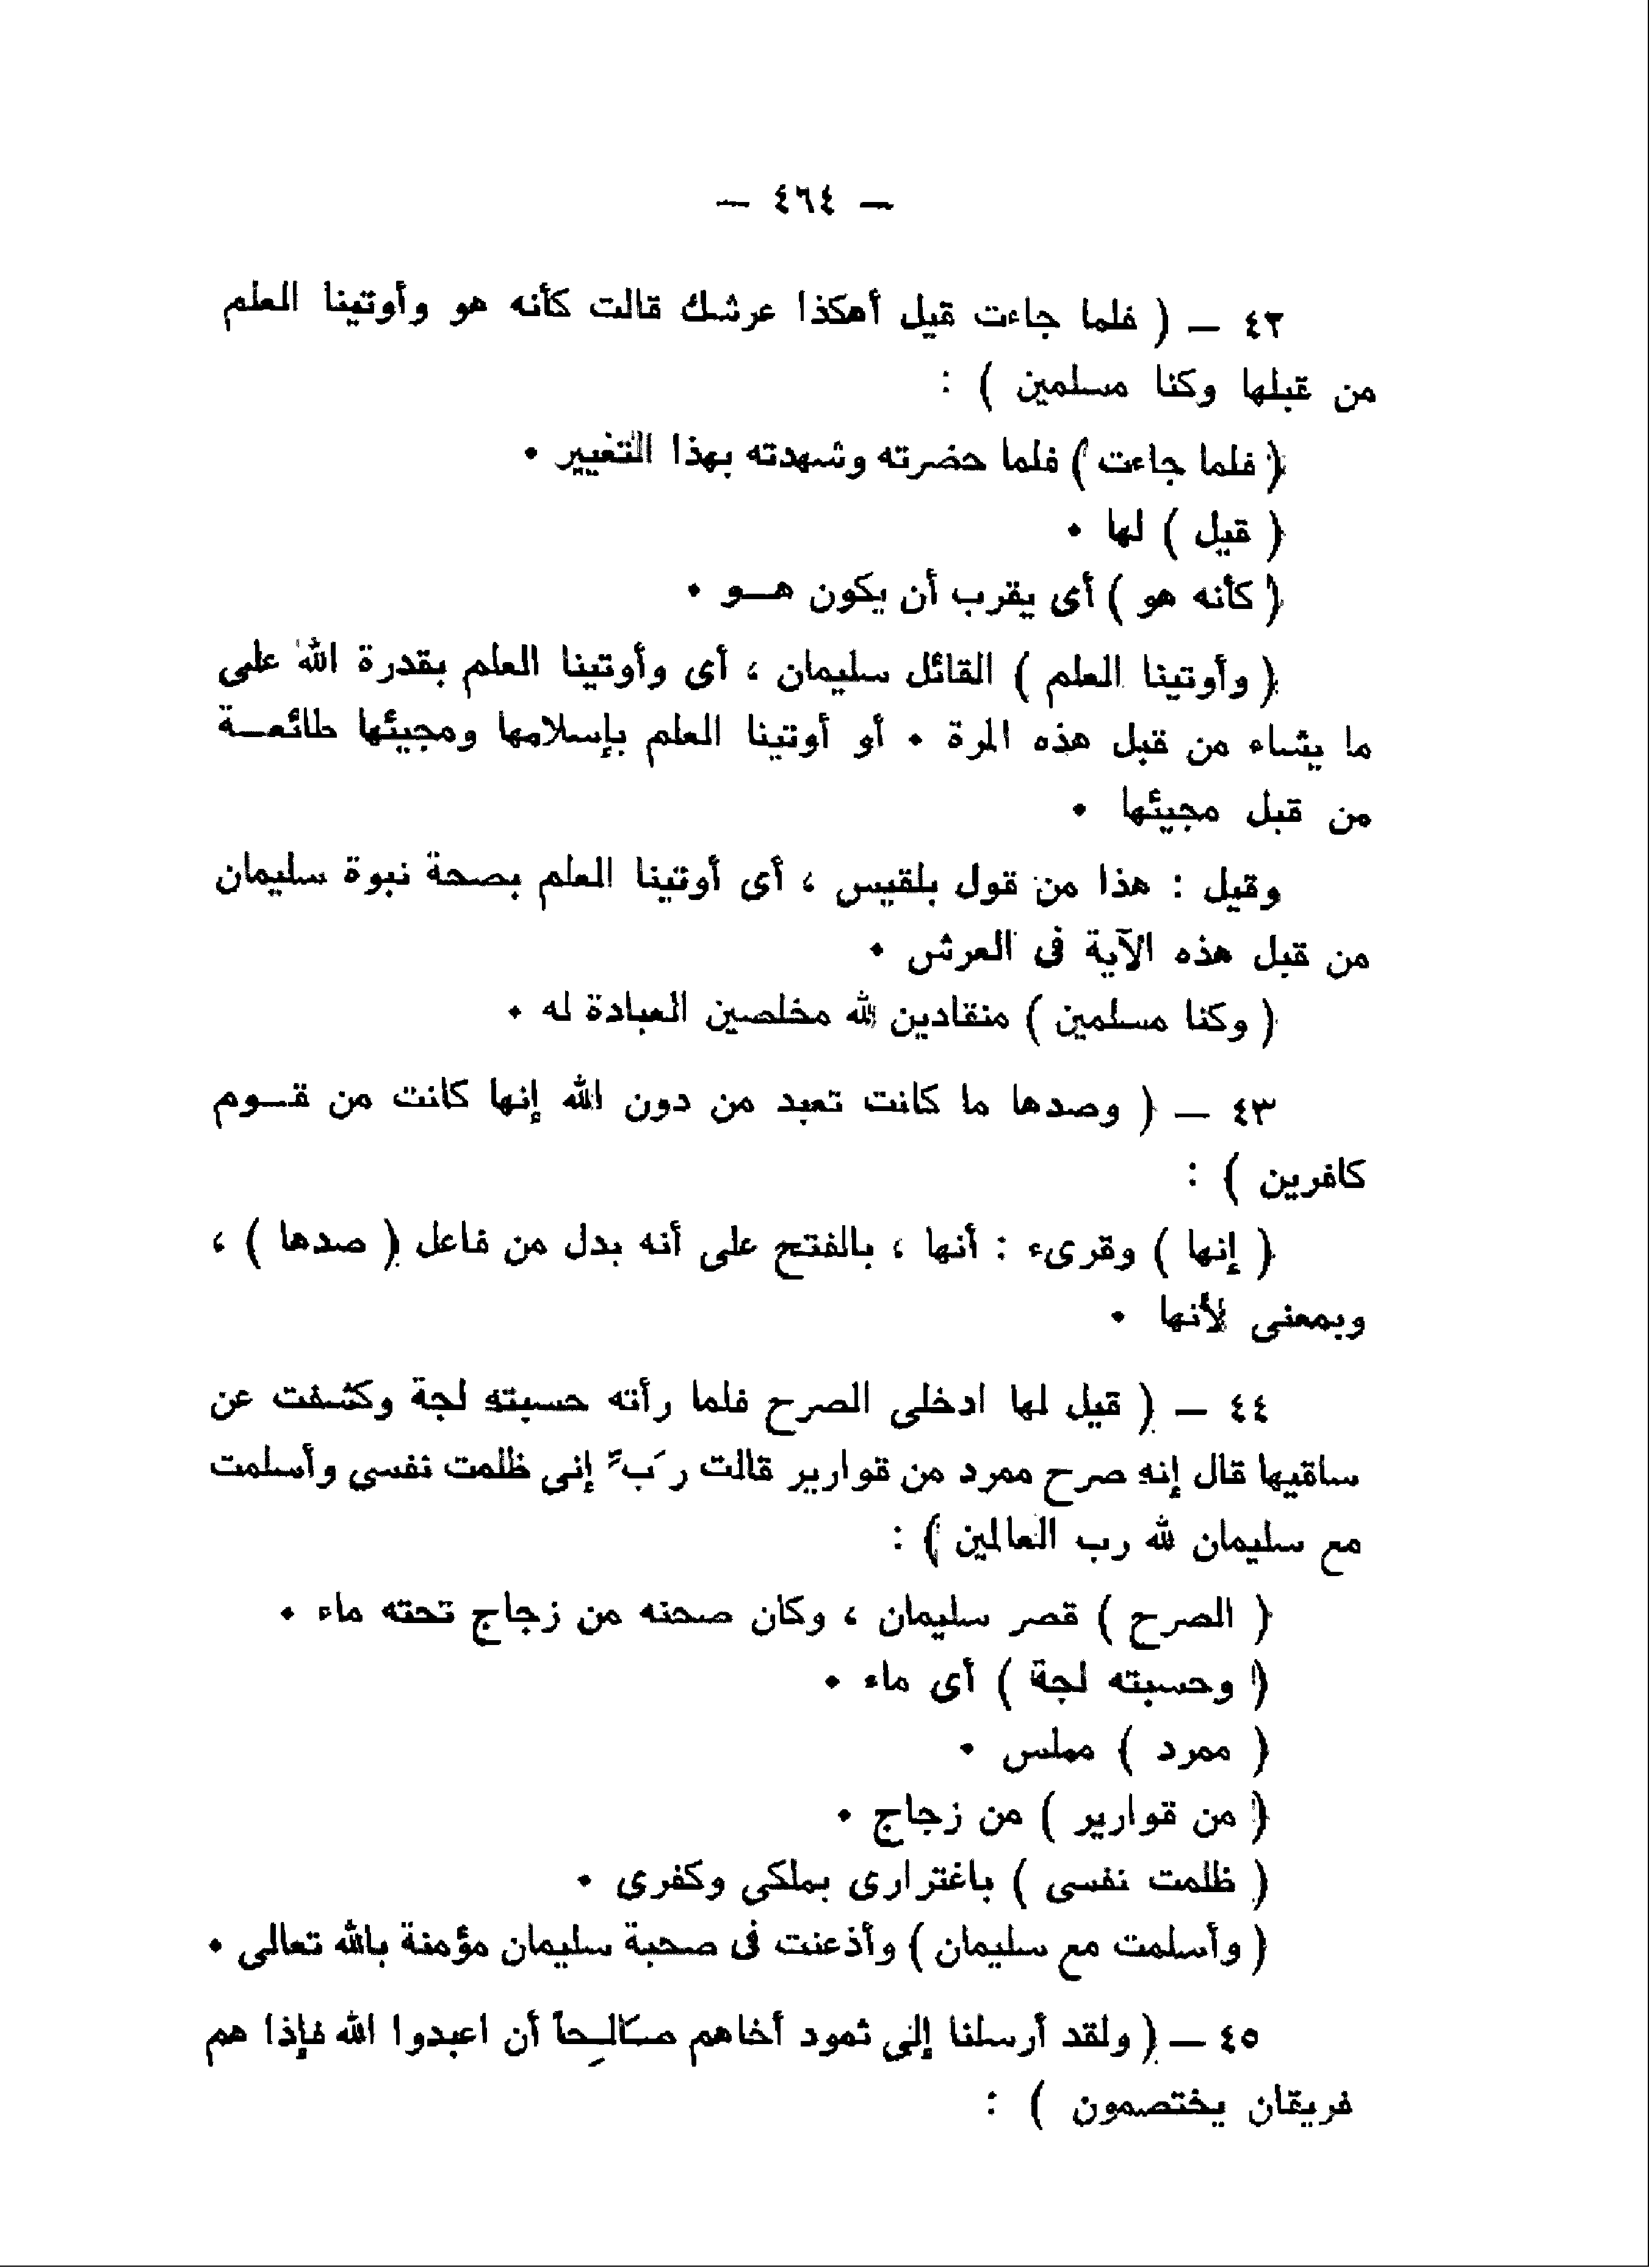 — ٤٦٤ —
٤٢ — ( فلما جاءت قيل أهكذا عرشك قالت كأنه هو وأوتينا العلم
من قبلها وكنا مسلمين ) :
( فلما جاءت ) فلما حضرته وشهدته بهذا التغيير ٠
( قيل ) لها ٠
( كأنه هو ) أى يقرب أن يكون هـــو ٠
( وأوتينا العلم ) القائل سليمان ، أى وأوتينا العلم بقدرة الله على
ما يشاء من قبل هذه المرة ٠ أو أوتينا العلم بإسلامها ومجيئها طائعــة
من قبل مجيئها ٠
وقيل : هذا من قول بلقيس ، أى أوتينا العلم بصحة نبوة سليمان
من قبل هذه الآية فى العرش ٠
( وكنا مسلمين ) منقادين لله مخلصين العبادة له ٠
٤٣ — ( وصدها ما كانت تعبد من دون الله إنها كانت من قــوم
كافرين ) :
( إنها ) وقرىء : أنها ، بالفتح على أنه بدل من فاعل ( صدها ) ،
وبمعنى لأنها ٠
٤٤ — ( قيل لها ادخلى الصرح فلما رأته حسبته لجة وكشفت عن
ساقيها قال إنه صرح ممرد من قوارير قالت رَبِّ إنى ظلمت نفسى وأسلمت
مع سليمان لله رب العالمين ) :
( الصرح ) قصر سليمان ، وكان صحنه من زجاج تحته ماء ٠
( وحسبته لجة ) أى ماء ٠
( ممرد ) مملس ٠
( من قوارير ) من زجاج ٠
( ظلمت نفسى ) باغترارى بملكى وكفرى ٠
( وأسلمت مع سليمان ) وأذعنت فى صحبة سليمان مؤمنة بالله تعالى ٠
٤٥ — ( ولقد أرسلنا إلى ثمود أخاهم صَالِحاً أن اعبدوا الله فإذا هم
فريقان يختصمون ) :